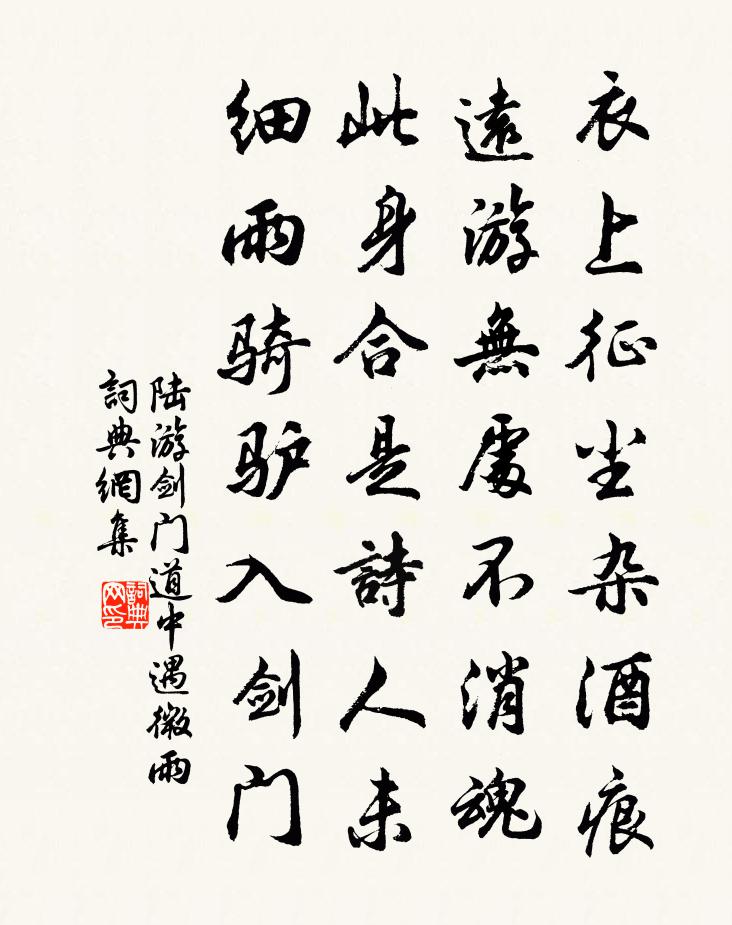 衣上征尘杂酒痕
遠游無處不消魂
此身合是詩人未
细雨骑驴入剑门
陆游剑门道中遇微雨
詞典網集
詞典网印